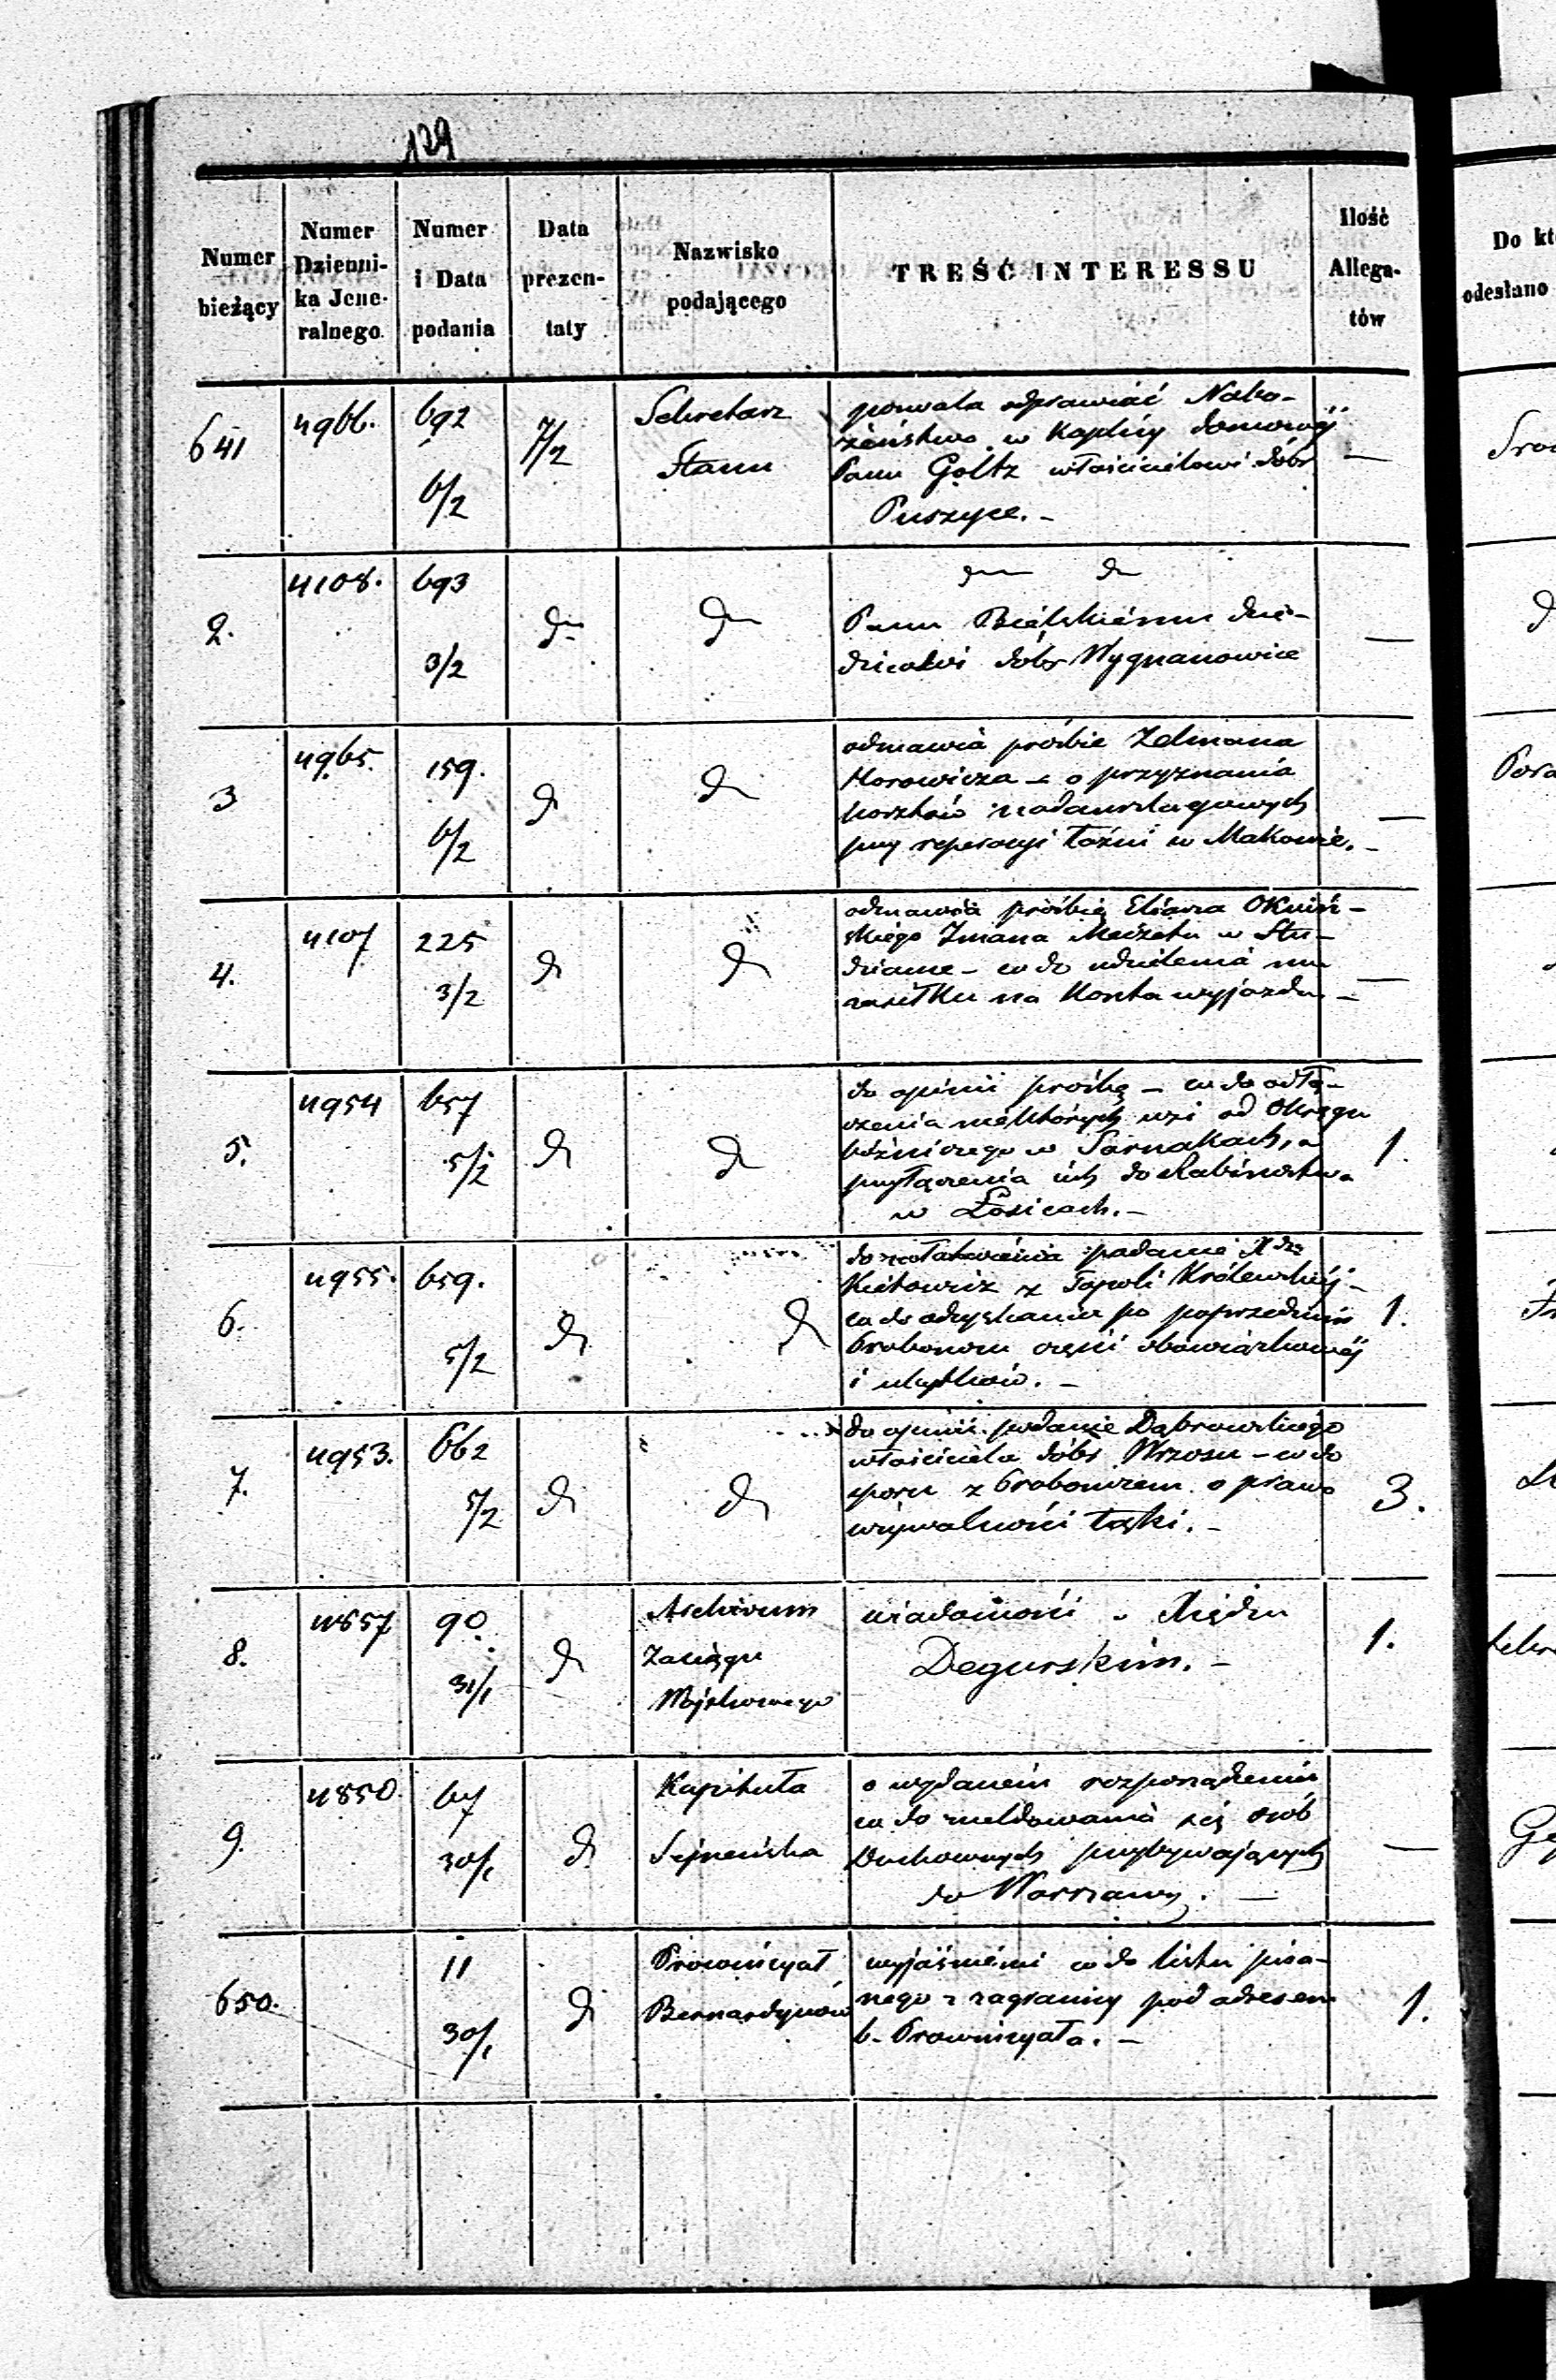 129
Numer bieżący
Numer Dzienni-ka Jene-ralnego
Numer i Data podania
Data prezen-taty
Nazwisko podającego
TREŚĆ INTERESSU
Ilość Allega-tów
Do kt
odesłano
641
4966.
692
6/2
7/2
Sekretarz
Stanu
pozwala odprawiać Nabo-
żeństwo w Kaplicy domowéj
Panu Goltz właścicielowi dóbr
Puszyce. -
—
2.
4108.
693
3/2
dn
dn
dn dn
Panu Bielskiému dzie-
dzicowi dóbr Wygnanowice
—
3
4965.
159.
6/2
d
d
odmawia prośbie Zelmana
Horowicza - o przyznania
kosztów nadanszlagowych
przy reperacyi łaźni w Makowie. -
—
4.
4107
225
3/2
d
d
odmawia prośbie Eliasza Okuiń-
skiego Imana Meczetu w Stu-
dziance - co do udzielenia mu
zasiłku na Koszta wyjazdu -
—
5.
4954
657
5/2
d
d
do opinii prośbę - co do odłą-
czenia niektórych wsi od Okręgu
bóżniczego w Sarnakach, a
przyłączenia ich do Rabinostwa
w Łosicach. -
1.
6.
4955.
659.
5/2
d
d
do załatwiénia podanie Xdza
z Topoli Królewskiéj -
co do odzyskania po poprzednim
Probonem części obowiązkowéj
i użytków. -
1.
7.
4953.
662
5/2
d
d
do opinii podanie Dąbrowskiego
właściciela dóbr Wrzosu - co do
sporu z Proboszczem o prawo
używalności łąki. -
3.
8.
4857
90
31/1
d
Archivum
Zaciągu
Wojskowego
wiadomości o Księdzu
Degurskim. -
1.
9.
4850.
67
30/1
d
Kapituła
Sejneńska
o wydaniem rozporządzeniu
co do meldowania się osób
Duchownych przybywających
do Warszawy. —
—
650.
11
30/1
d
Prowincyał
Bernardynów
wyjaśniéni co do listu pisa-
nego z zagranicy pod adresem
b. Prowincyała. -
1.